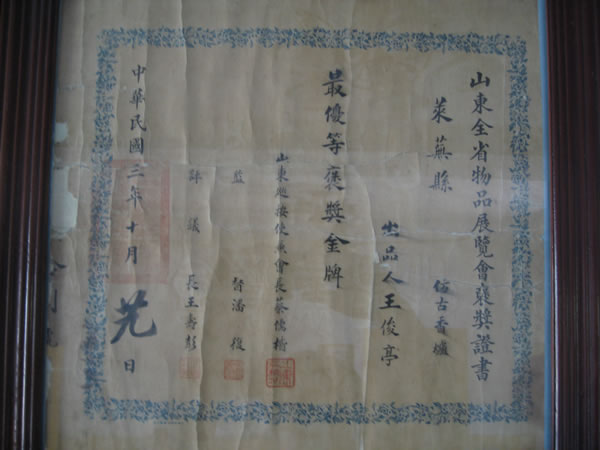 山東全省物品展覽會褒獎證書
萊蕪縣 仿古香爐
出品人王俊亭
最優等褒獎金牌
山東巡按使兼會長蔡儒楷
監督潘復
評議長王壽彭
中華民國三年十月 日